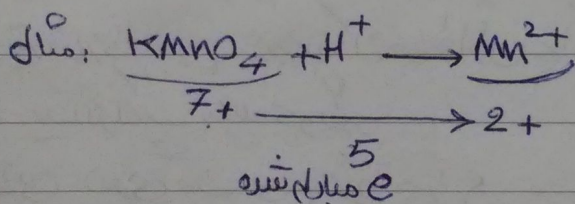 مثال: KMnO₄ + H⁺ → Mn²⁺
7+ → 2+
5
e مبادله شده